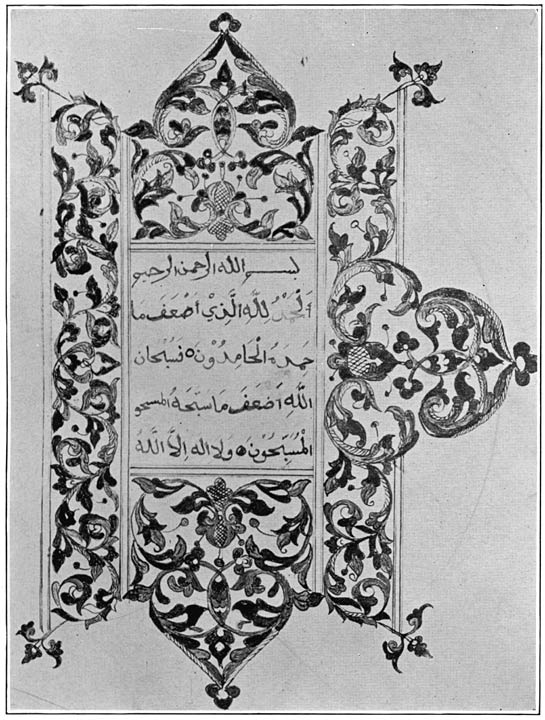 بسم الله الرحمن الرحيم
اَلْحَمْدُ لِلّٰهِ الَّذِيْ اَضْعَفَ مَا
حمده الْحَامِدُوْنَ ه فَسُبْحَانَ
اللّٰهِ اَضْعَفَ مَا سَبَّحَهُ المسبحو
الْمُسَبِّحُوْنَ ه وَلَا اله اِلَّا اللّٰهُ